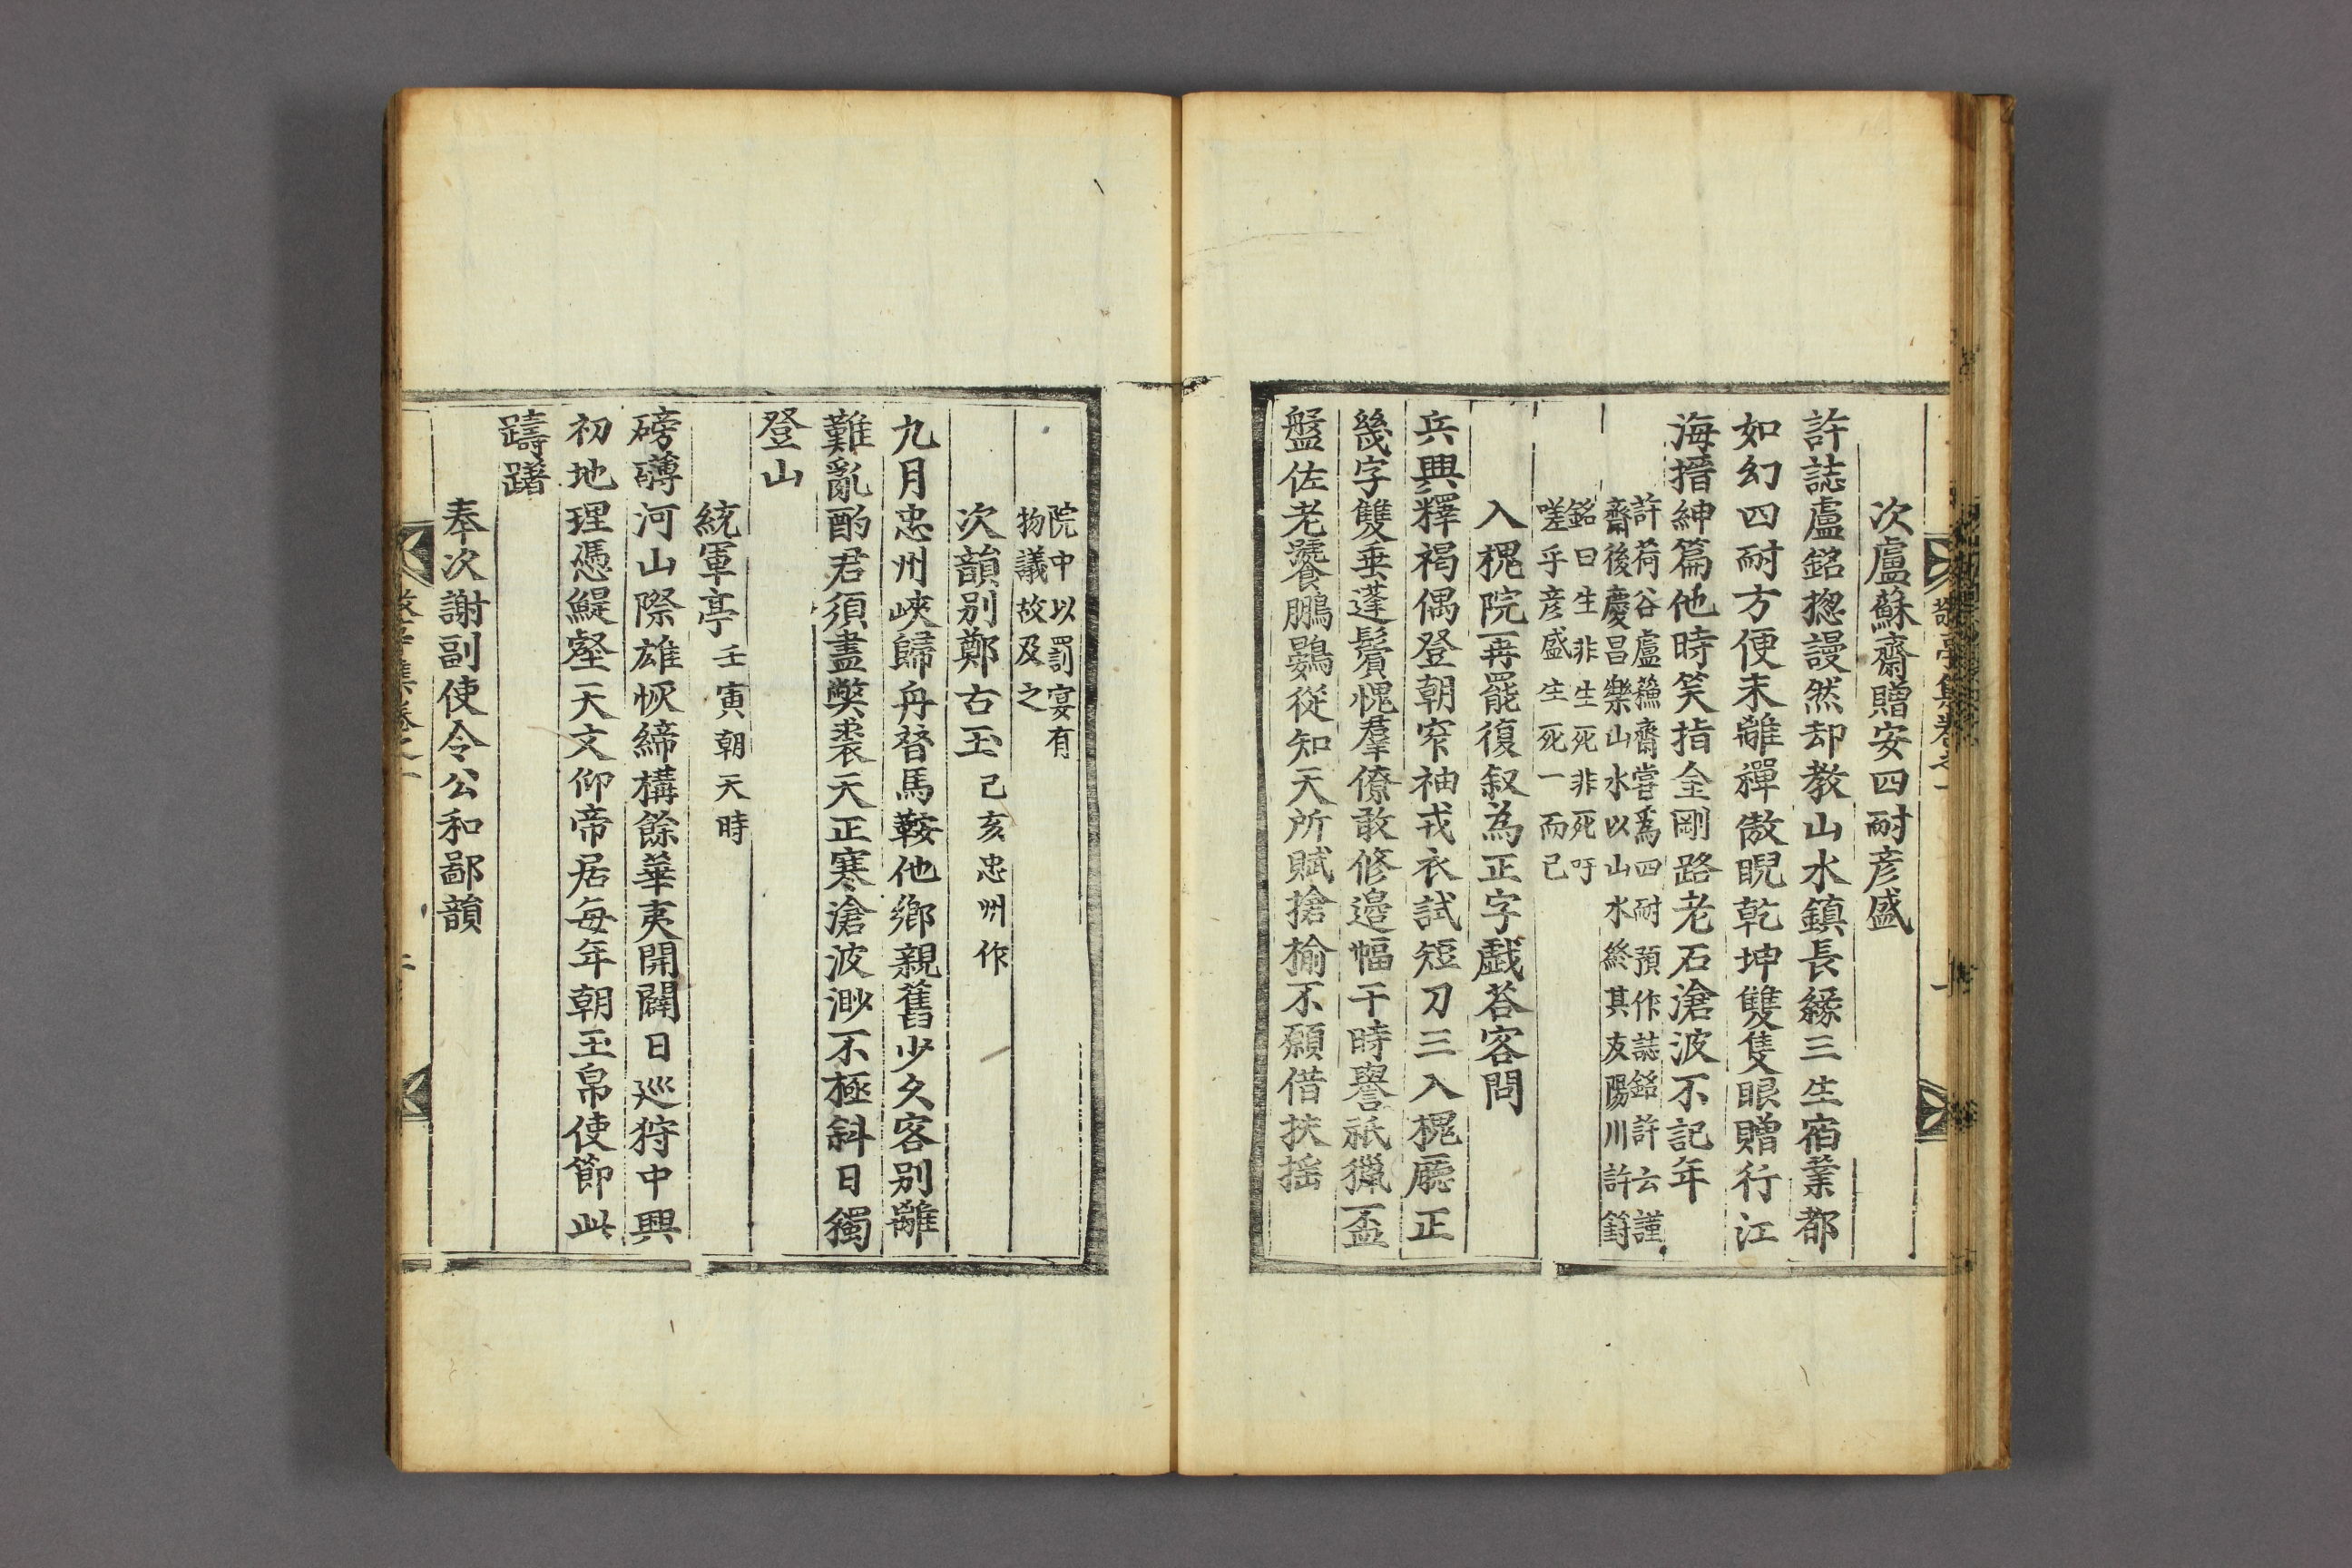 次盧蘇齋贈安四耐彦盛
許誌盧銘揔謾然却教山水鎮長緣三生宿業都
如幻四耐方便未離禪傲睨乾坤雙隻眼贈行江
海搢紳篇他時笑指金剛路老石滄波不記年
許荷谷盧蘓齋嘗爲四耐預作誌銘許云謹
齋後慶昌樂山水以山水終其友陽川許篈
銘曰生非生死非死吁
嗟乎彦盛生死一而已
入槐院再罷復叙為正字戲荅客問
兵興釋褐偶登朝窄袖戎衣試短刀三入槐廳正
幾字雙垂蓬鬢愧羣僚敢修邉幅干時譽祇獵一盃
盤佐老饕鵬鷃従知天所賦搶榆不願借扶揺
院中以罰宴有
物議故及之
次韻别鄭古玉 己亥忠州作
九月忠州峽歸舟替馬鞍他鄉親舊少久客别離
難亂酌君須盡獘裘天正寒滄波渺不極斜日獨
登山
統軍亭 壬寅朝天時
磅礴河山際雄恢締構餘華夷開闢日巡狩中興
初地理憑鯷壑天文仰帝居每年朝玉帛使節此
躊躇
奉次謝副使令公和鄙韻